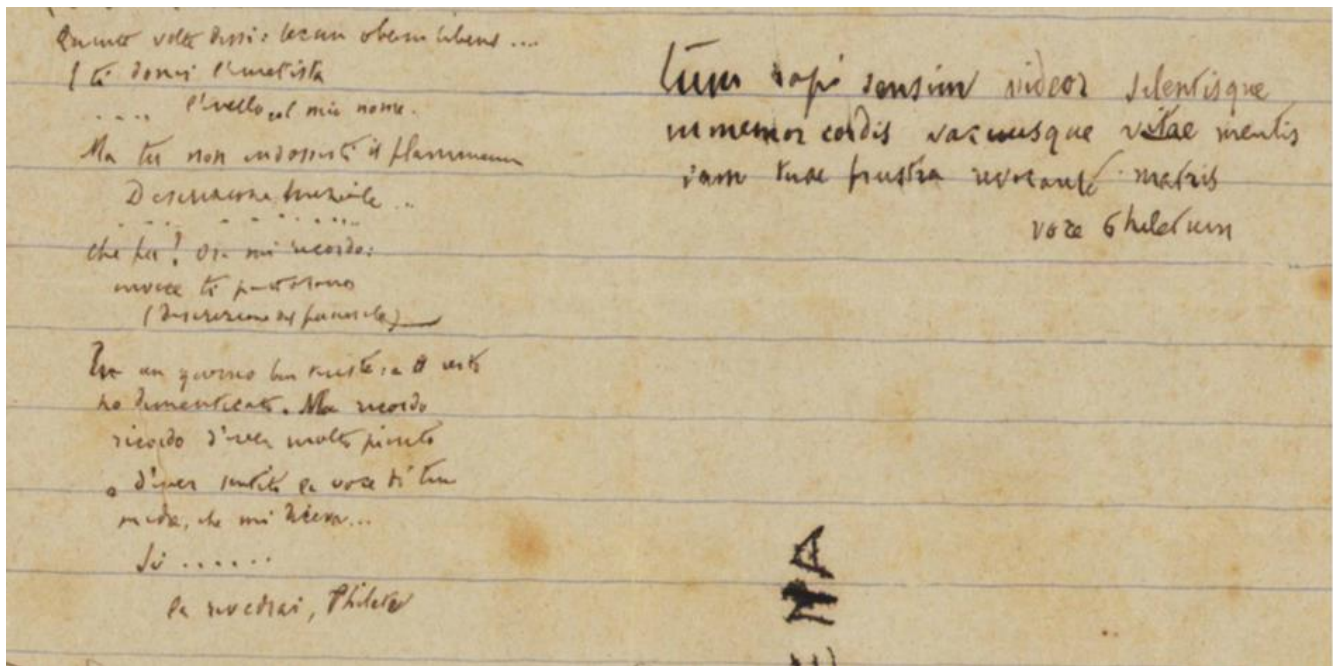 Quante volte dissi: tecum obeam libens ....
E ti donai l'ametista
.... l'anello col mio nome.
Ma tu non indossasti il flammeum
Descrizione nuziale ..
. . . . . . . . . .
che fu? Or mi ricordo:
invece ti portarono
(Descrizione del funerale)
un giorno ben triste: a
ho dimenticato. Ma ricordo
ricordo d'aver molto pianto
o d'aver sentito la voce di tua
madre, che mi diceva...
Si ......
la rivedrai, Philete
tum rapi sensim videor silentisque
immemor cordis vacuusque vitae mentis
iam tuae frustra revocante matris
voce Philetum